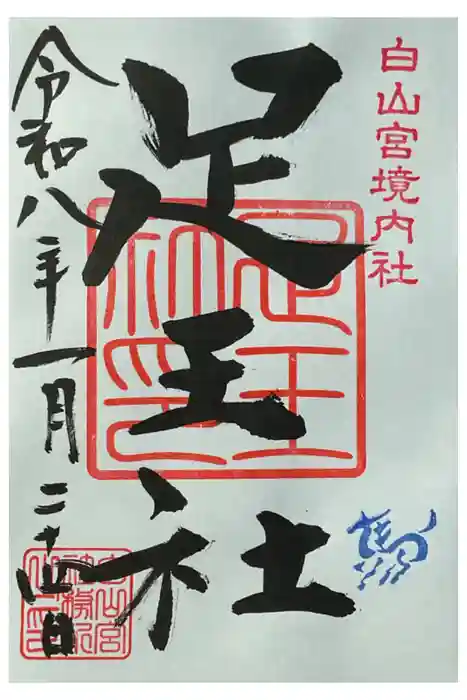 白山宮境内社
足王社
令和八年一月二十四日
足王社印
白山宮